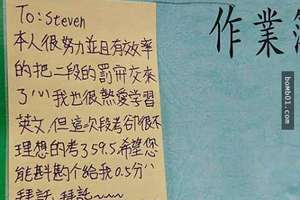 To: Steven
本人很努力並且有效率
的把二段的罰冊交來
了!!! 我也很熱愛學習
英文，但這次段考卻很不
理想的考了59.5，希望您
能斟酌个給我0.5分!!
拜託，拜託~~~
作業簿
bomb01.com